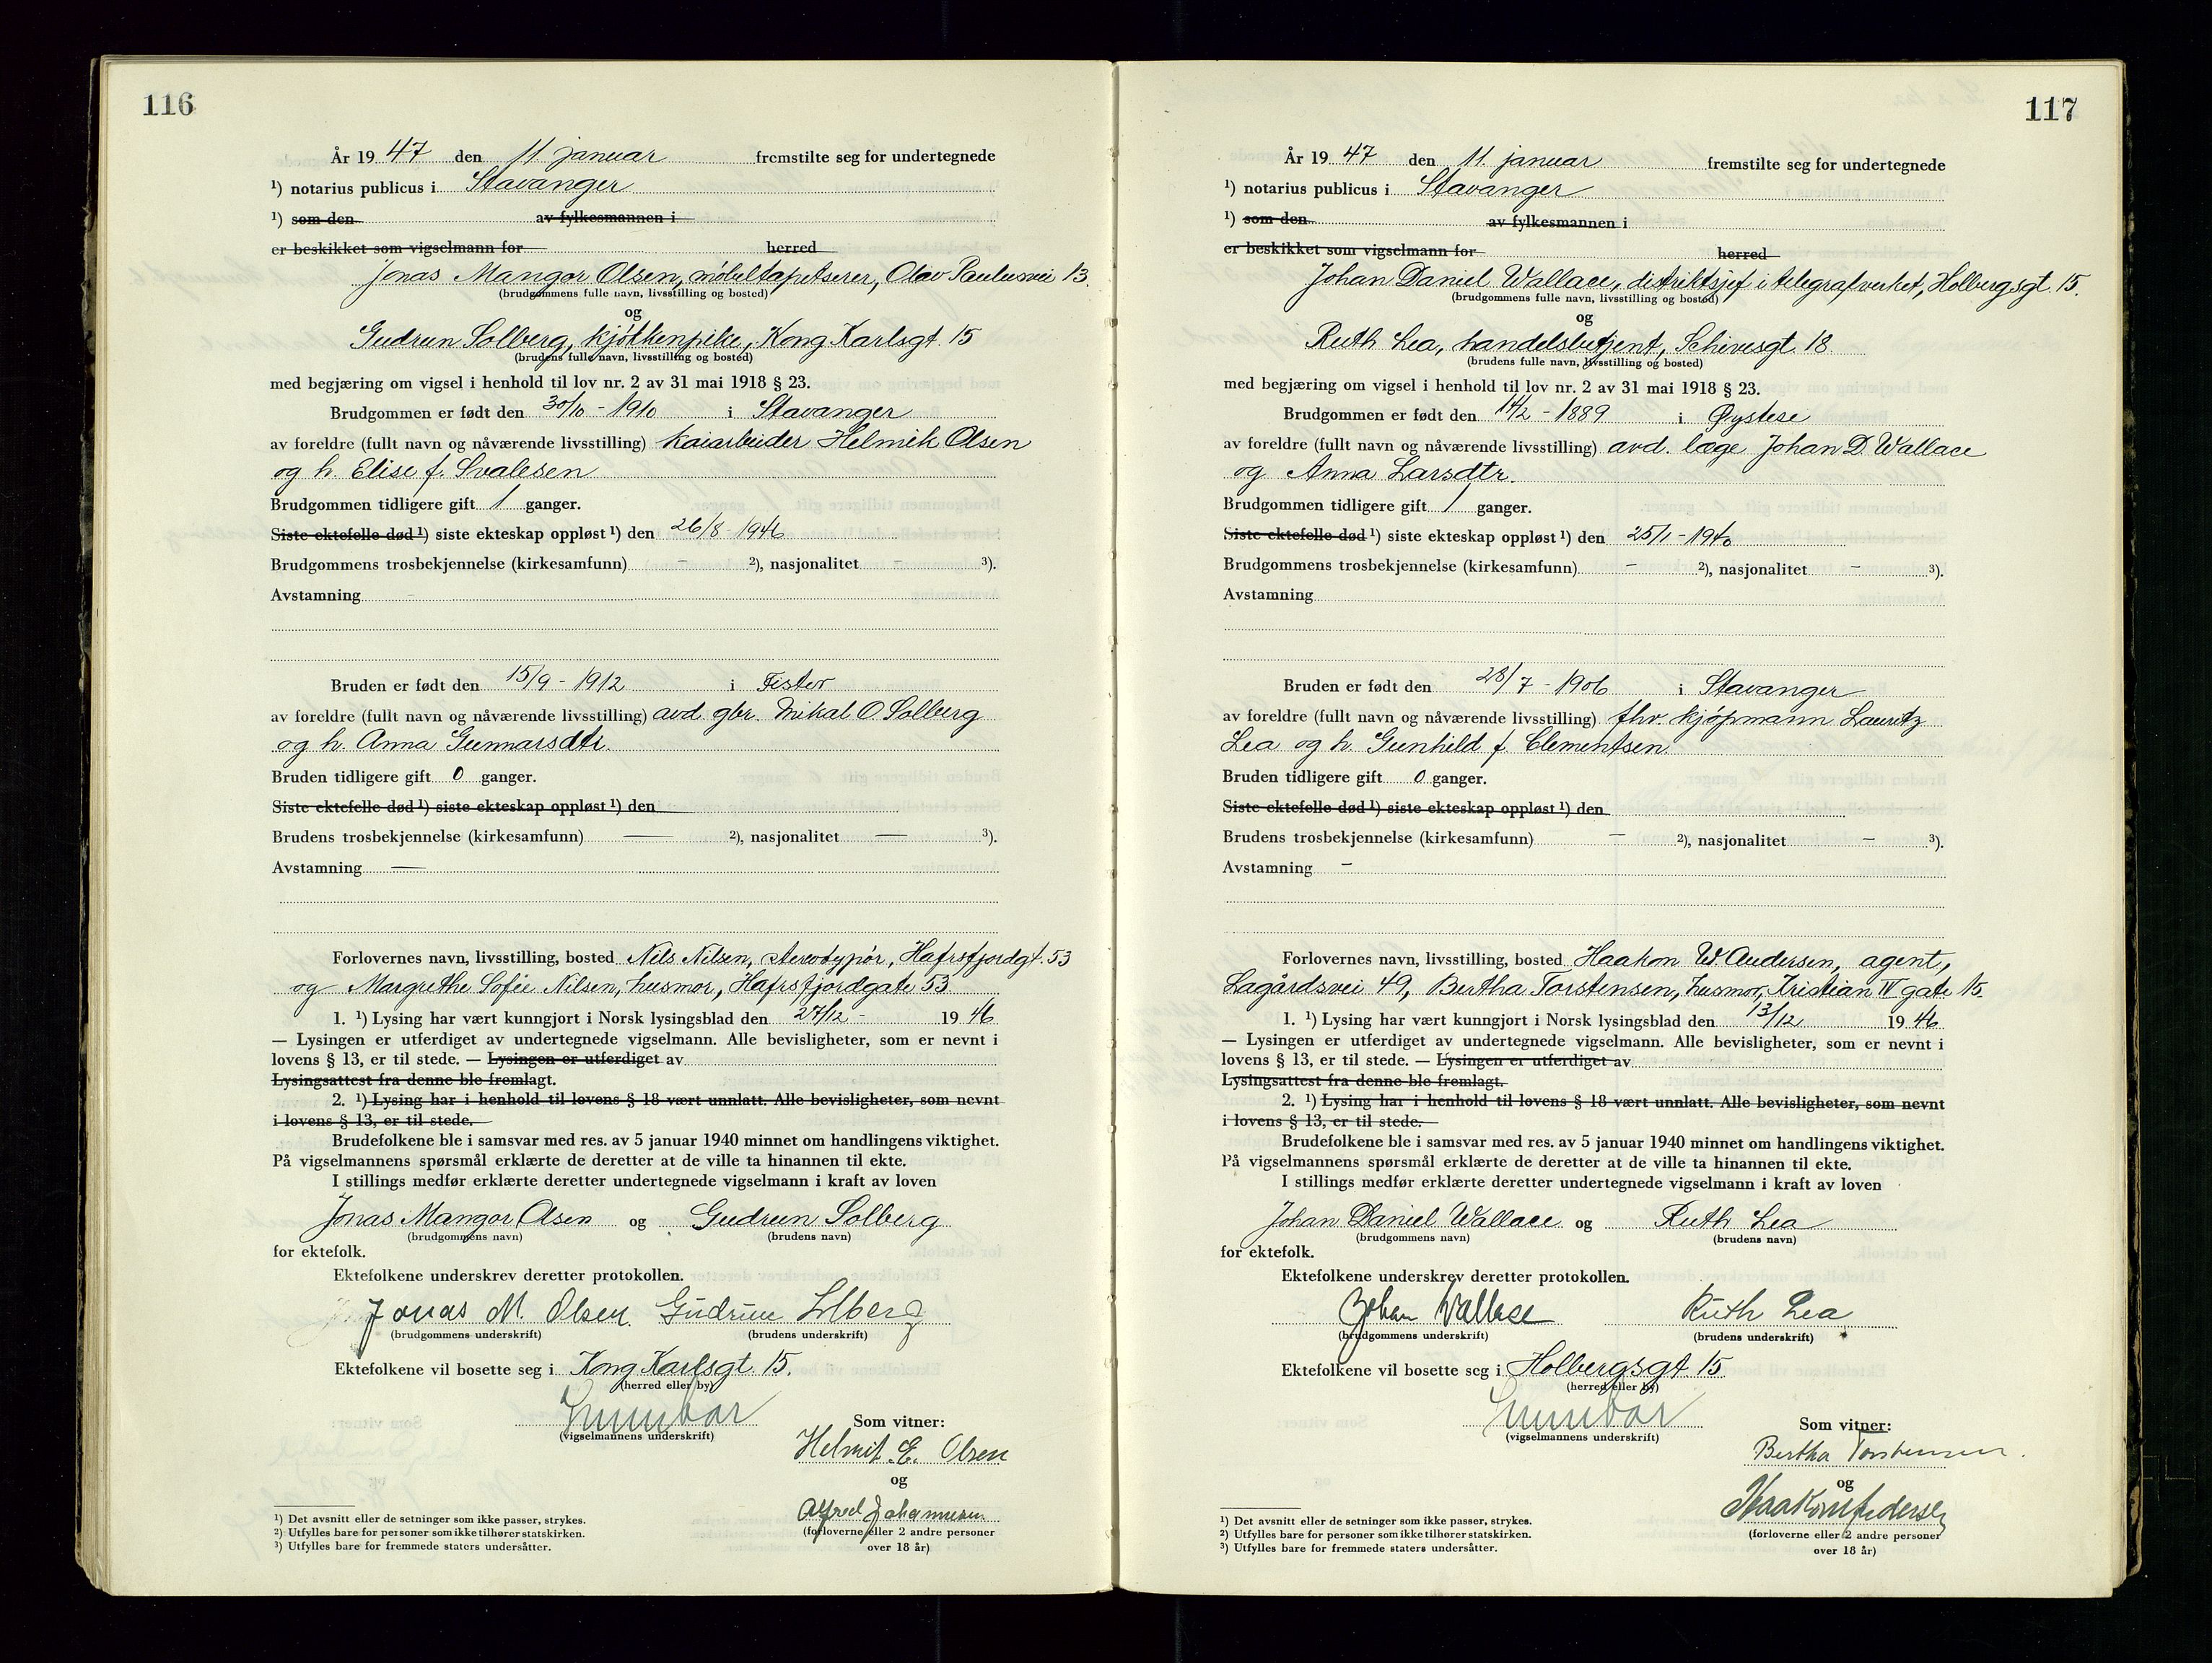 116
År 1947 den 11 januar fremstilte seg for undertegnede
¹) notarius publicus i Stavanger
¹) som den av fylkesmannen i
er beskikket som vigselmann for herred
Jonas Mangor Olsen, møbeltapetserer, Olav Paulusvei 13.
(brudgommens fulle navn, livsstilling og bosted)
og
Gudrun Solberg, kjøkkenpike, Kong Karlsgt. 15
(brudens fulle navn, livsstilling og bosted)
med begjæring om vigsel i henhold til lov nr. 2 av 31 mai 1918 § 23.
Brudgommen er født den 30/10 - 1910 i Stavanger
av foreldre (fullt navn og nåværende livsstilling) kaiarbeider Helmik Olsen
og h. Elise f. Svalesen
Brudgommen tidligere gift 1 ganger.
Siste ektefelle død ¹) siste ekteskap oppløst ¹) den 26/8 - 1946
Brudgommens trosbekjennelse (kirkesamfunn) - ²), nasjonalitet - ³).
Avstamning -
Bruden er født den 15/9 - 1912 i Fister
av foreldre (fullt navn og nåværende livsstilling) avd. gbr. Mikal O. Solberg
og h. Anna Gunnarsdtr.
Bruden tidligere gift 0 ganger.
Siste ektefelle død ¹) siste ekteskap oppløst ¹) den
Brudens trosbekjennelse (kirkesamfunn) — ²), nasjonalitet — ³).
Avstamning —
Forlovernes navn, livsstilling, bosted Nils Nilsen, stereotypør, Hafrsfjordgt. 53
og Margrethe Sofie Nilsen, husmor, Hafrsfjordgate 53
1. ¹) Lysing har vært kunngjort i Norsk lysingsblad den 27/12 - 1946
— Lysingen er utferdiget av undertegnede vigselmann. Alle bevisligheter, som er nevnt i
lovens § 13, er til stede. — Lysingen er utferdiget av
Lysingsattest fra denne ble fremlagt.
2. ¹) Lysing har i henhold til lovens § 18 vært unnlatt. Alle bevisligheter, som nevnt
i lovens § 13, er til stede.
Brudefolkene ble i samsvar med res. av 5 januar 1940 minnet om handlingens viktighet.
På vigselmannens spørsmål erklærte de deretter at de ville ta hinannen til ekte.
I stillings medfør erklærte deretter undertegnede vigselmann i kraft av loven
Jonas Mangor Olsen og Gudrun Solberg
(brudgommens navn) (brudens navn)
for ektefolk.
Ektefolkene underskrev deretter protokollen.
Jonas M. Olsen. Gudrun Solberg
(brudgommens underskrift) (brudens underskrift)
Ektefolkene vil bosette seg i Kong Karlsgt. 15.
(herred eller by)
(vigselmannens underskrift)
Som vitner:
Helmik E. Olsen
og
Alfred Johannesen
(forloverne eller 2 andre personer
over 18 år)
¹) Det avsnitt eller de setninger som ikke passer, strykes.
²) Utfylles bare for personer som ikke tilhører statskirken.
³) Utfylles bare for fremmede staters undersåtter.
117
År 1947 den 11. januar fremstilte seg for undertegnede
¹) notarius publicus i Stavanger
¹) som den av fylkesmannen i
er beskikket som vigselmann for herred
Johan Daniel Wallace, distriktsjef i telegrafverket, Holbergsgt. 15.
(brudgommens fulle navn, livsstilling og bosted)
og
Ruth Lea, handelsbetjent, Schivesgt. 18
(brudens fulle navn, livsstilling og bosted)
med begjæring om vigsel i henhold til lov nr. 2 av 31 mai 1918 § 23.
Brudgommen er født den 14/2 - 1889 i Øystese
av foreldre (fullt navn og nåværende livsstilling) avd. læge Johan D. Wallace
og Anna Larsdtr.
Brudgommen tidligere gift 1 ganger.
Siste ektefelle død ¹) siste ekteskap oppløst ¹) den 25/1 - 1940
Brudgommens trosbekjennelse (kirkesamfunn) - ²), nasjonalitet - ³).
Avstamning
Bruden er født den 28/7 - 1906 i Stavanger
av foreldre (fullt navn og nåværende livsstilling) fhv. kjøpmann Lauritz
Lea og h. Gunhild f. Clementsen
Bruden tidligere gift 0 ganger.
Siste ektefelle død ¹) siste ekteskap oppløst ¹) den
Brudens trosbekjennelse (kirkesamfunn) - ²), nasjonalitet - ³).
Avstamning -
Forlovernes navn, livsstilling, bosted Haakon W. Andersen, agent,
Lagårdsvei 49, Bertha Torstensen, husmor, Kristian IV gate 15.
1. ¹) Lysing har vært kunngjort i Norsk lysingsblad den 13/12 1946
— Lysingen er utferdiget av undertegnede vigselmann. Alle bevisligheter, som er nevnt i
lovens § 13, er til stede. — Lysingen er utferdiget av
Lysingsattest fra denne ble fremlagt.
2. ¹) Lysing har i henhold til lovens § 18 vært unnlatt. Alle bevisligheter, som nevnt
i lovens § 13, er til stede.
Brudefolkene ble i samsvar med res. av 5 januar 1940 minnet om handlingens viktighet.
På vigselmannens spørsmål erklærte de deretter at de ville ta hinannen til ekte.
I stillings medfør erklærte deretter undertegnede vigselmann i kraft av loven
Johan Daniel Wallace og Ruth Lea
(brudgommens navn) (brudens navn)
for ektefolk.
Ektefolkene underskrev deretter protokollen.
Johan Wallace Ruth Lea
(brudgommens underskrift) (brudens underskrift)
Ektefolkene vil bosette seg i Holbergsgt 15
(herred eller by)
(vigselmannens underskrift)
Som vitner:
Bertha Torstensen.
og
Haakon Andersen
(forloverne eller 2 andre personer
over 18 år)
¹) Det avsnitt eller de setninger som ikke passer, strykes.
²) Utfylles bare for personer som ikke tilhører statskirken.
³) Utfylles bare for fremmede staters undersåtter.